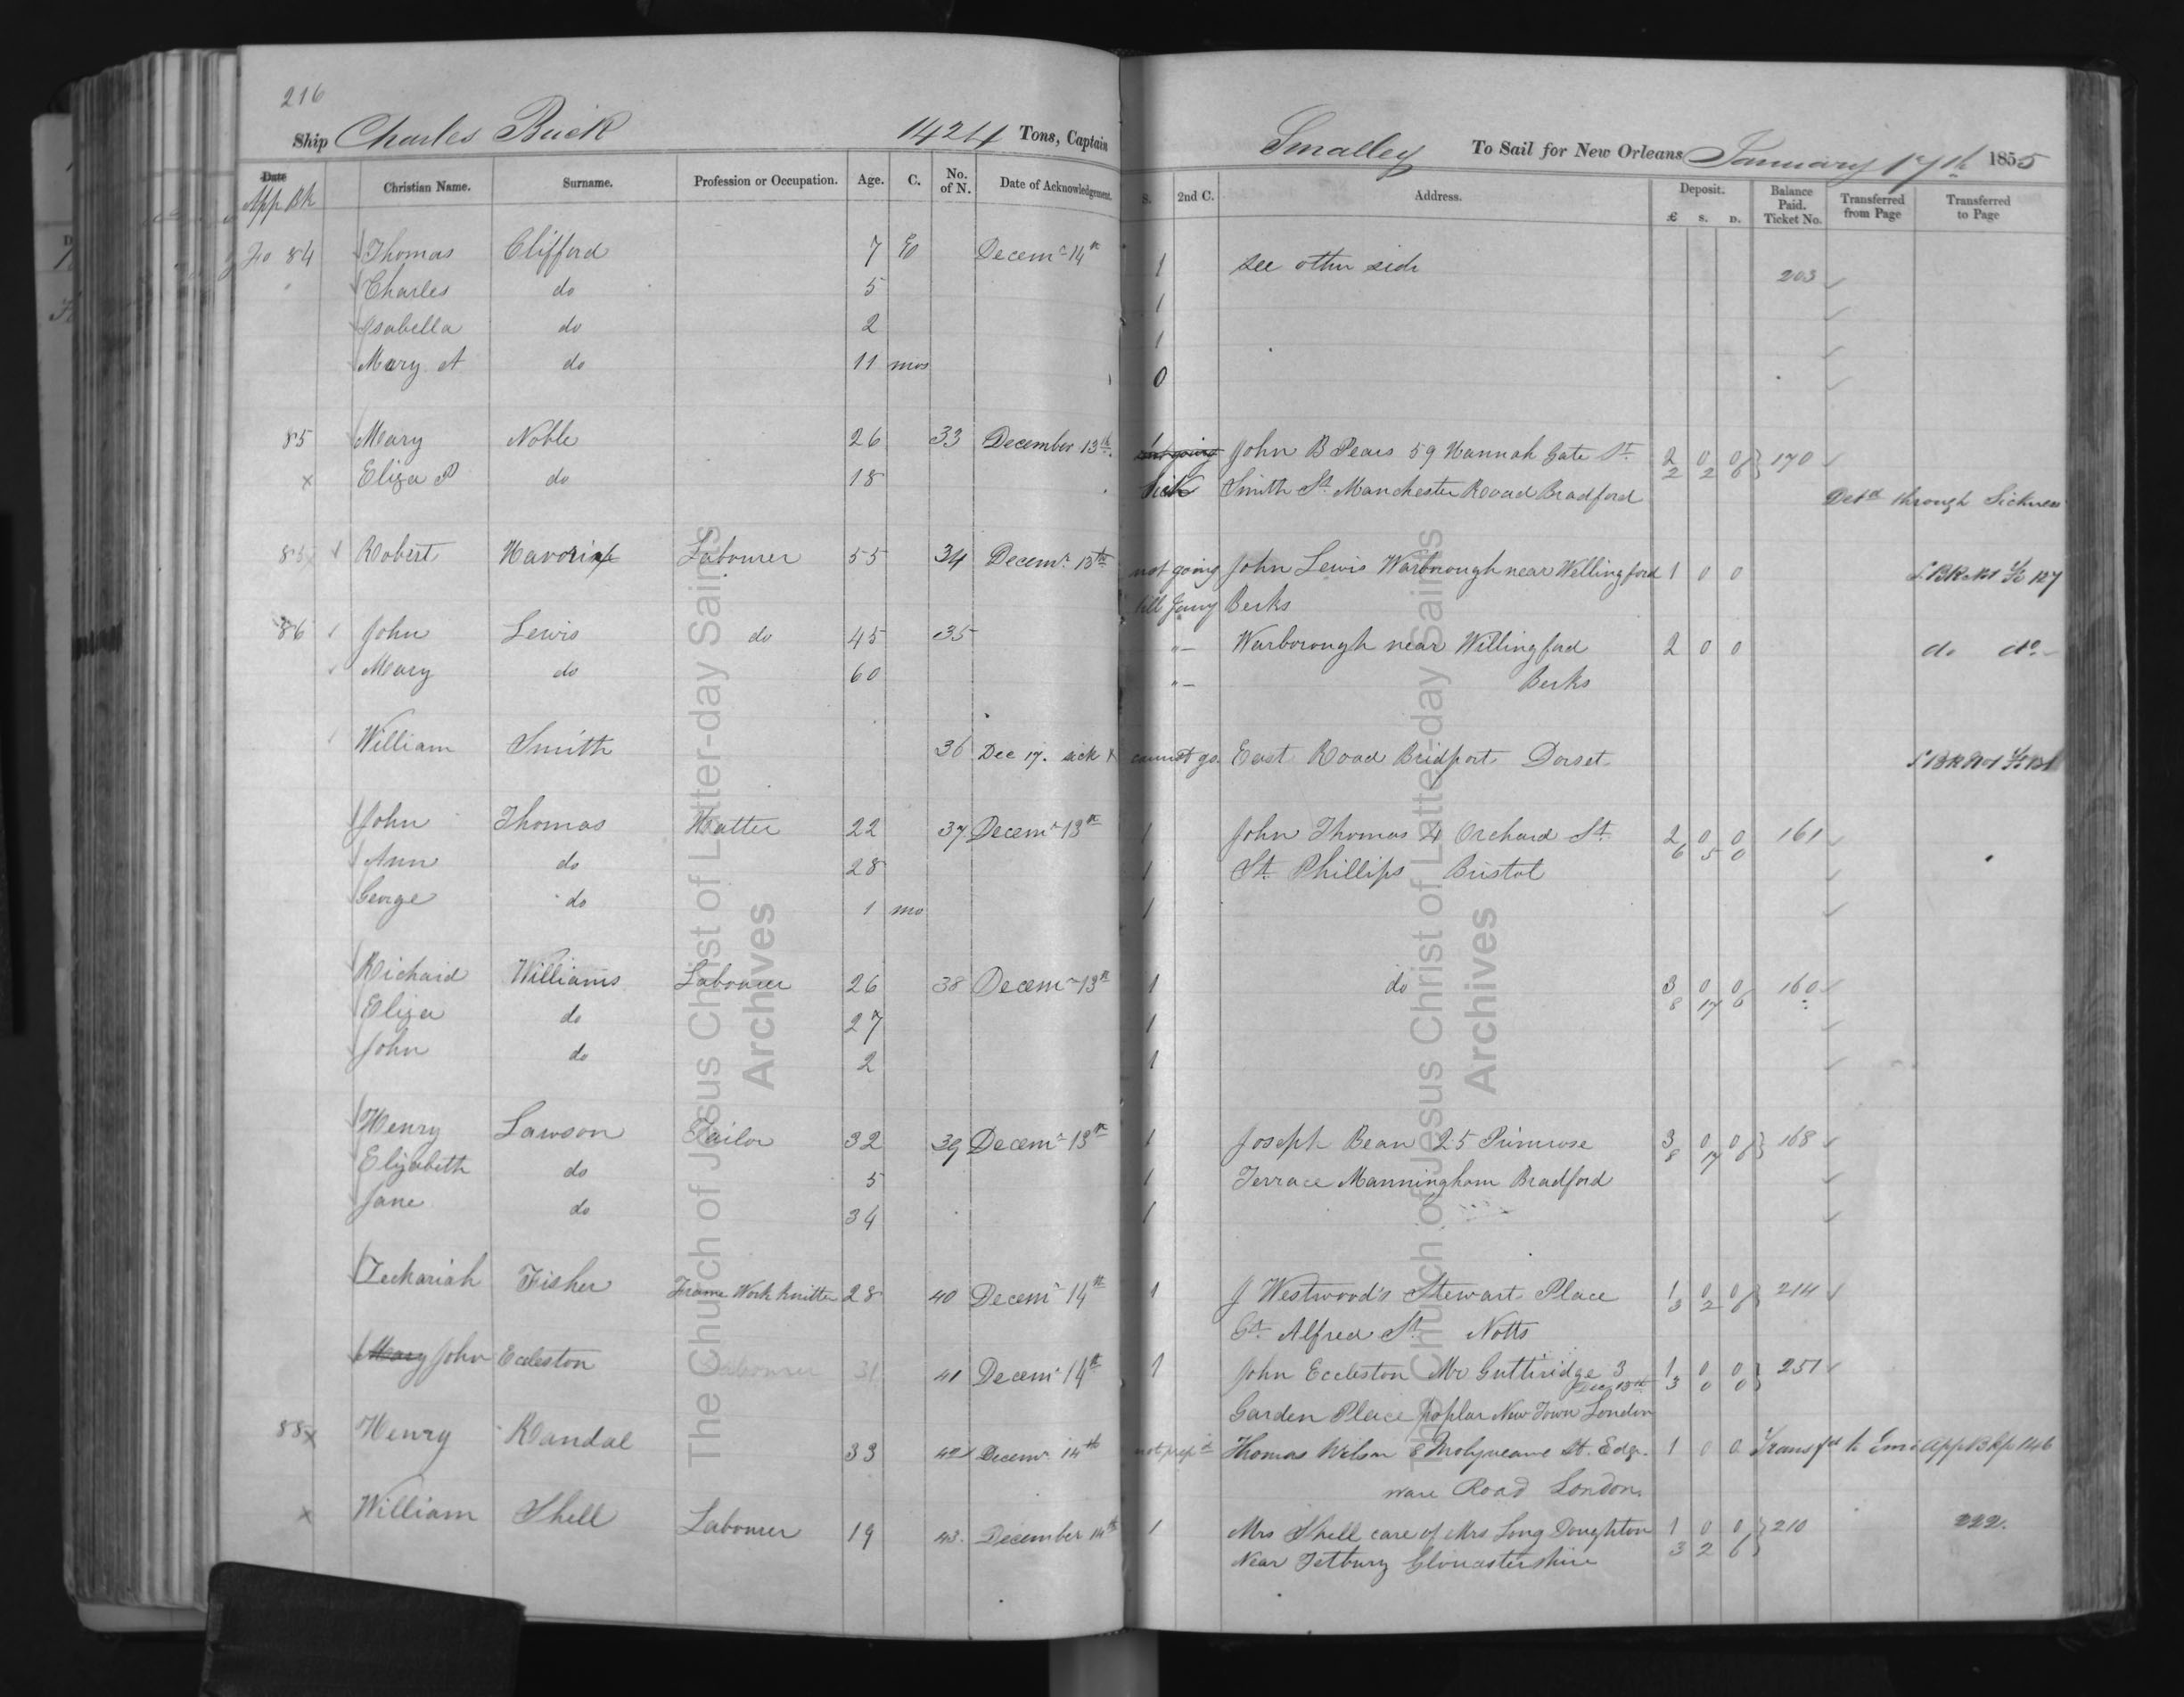 216
Ship Charles Buck 1424 Tons, Captain Smalley To Sail for New Orleans January 17th 1855
Date App Bk Christian Name. Surname. Profession or Occupation. Age. C. No. of N. Date of Acknowledgement. S. 2nd C. Address. Deposit. £ S. D. Balance Paid. Ticket No. Transferred from Page Transferred to Page
Fo 84 Thomas Clifford 7 Decemr 14th 1 see other side 203
Charles do 5 1
Isabella do 2 1
Mary A do 11 mos 0
85 Mary Noble 26 33 December 13th. John B Pears 59 Hannah Gate St. 2 0 0 170
x Eliza P do 18 Sick Smith St Manchester Road Bradford 2 2 6 Detd through Sickness
85 Robert Labourer 55 34 Decemr. 13th not going John Lewis Warborough near Wellingford 1 0 0
till Jany Berks
86 John Lewis do 45 35 "– Warborough near Willingford 2 0 0 do do
Mary do 60 "– Berks
William Smith 36 Dec 17. sick & cannot go. East Road Bridport Dorset
John Thomas Hatter 22 37 Decemr 13th 1 John Thomas 4 Orchard St. 2 0 0 161
Ann do 28 1 St. Phillips Bristol 6 5 0
George do 1 mo 1
Richard Williams Labourer 26 38 Decemr 13th 1 do 3 0 0 160
Eliza do 27 1 8 17 6
John do 2 1
Henry Lawson Tailor 32 39 Decemr 13th 1 Joseph Bean 25 Primrose 3 0 0 168
Elizabeth do 5 1 Terrace Manningham Bradford 8 17 6
Jane do 34 1
Zechariah Fisher Frame Work knitter 28 40 Decemr 14th 1 J Westwood's Stewart Place 1 0 0 214
Gt. Alfred St. Notts 3 2 6
Mary John Eccleston Labourer 31 41 Decemr 14th 1 John Eccleston Mr Guttridge 3 1 0 0 251
Garden Place poplar New Town London 3 0 0
88 x Henry Randal 33 42 Decemr 14th not prepd Thomas Wilson 8 St. Edge- 1 0 0 Transfd to Emi App Bk p 146
ware Road London.
x William Shell Labourer 19 43. December 14th 1 Mrs Shell care of Mrs Long Doughton 1 0 0 210 222.
Near Tetbury Gloucestershire 3 2 6
The Church of Jesus Christ of Latter-day Saints
Archives
The Church of Jesus Christ of Latter-day Saints
Archives